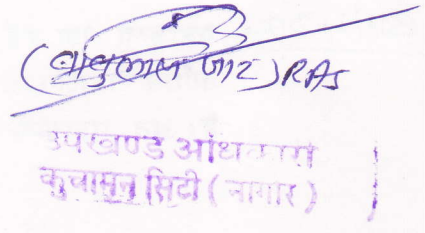 (बाबुलाल जाट) RAS
उपखण्ड अधिकारी
कुचामन सिटी ( नागौर )